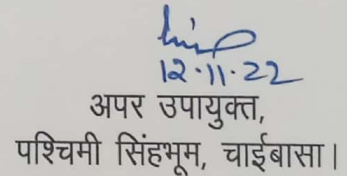 12.11.22
अपर उपायुक्त,
पश्चिमी सिंहभूम, चाईबासा।